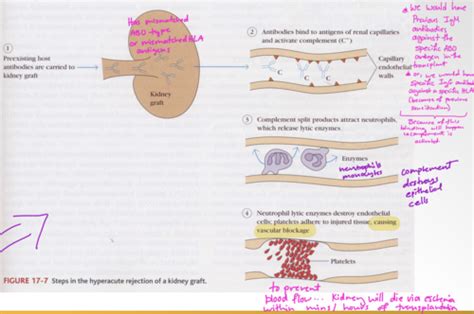 Has mismatched
ABO-type
or mismatched HLA
antigens
1
Preexisting host
antibodies are carried to
kidney graft
Kidney
graft
2
Antibodies bind to antigens of renal capillaries
and activate complement (C')
C
C
C
Capillary
endothelial
walls
we would have
Previous IgM
antibodies
against the
specific ABO
antigen in the
transplant
or, we would have
specific IgG antibodies
against a specific HLA
(because of previous
Because of this
binding will happen
complement is
activated
3
Complement split products attract neutrophils,
which release lytic enzymes
Enzymes
neutrophils
monocytes
complement
destroys
epithelial
cells
4
Neutrophil lytic enzymes destroy endothelial
cells; platelets adhere to injured tissue, causing
vascular blockage
Platelets
FIGURE 17-7 Steps in the hyperacute rejection of a kidney graft.
to prevent
blood flow... Kidney will die via ischemia
within mins/hours of transplantation